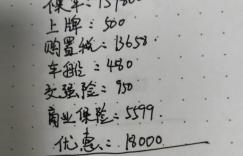 保车: 15980
上牌: 500
购置税: 13658
车船: 480
交强险: 950
商业保险: 5599
优惠: 18000